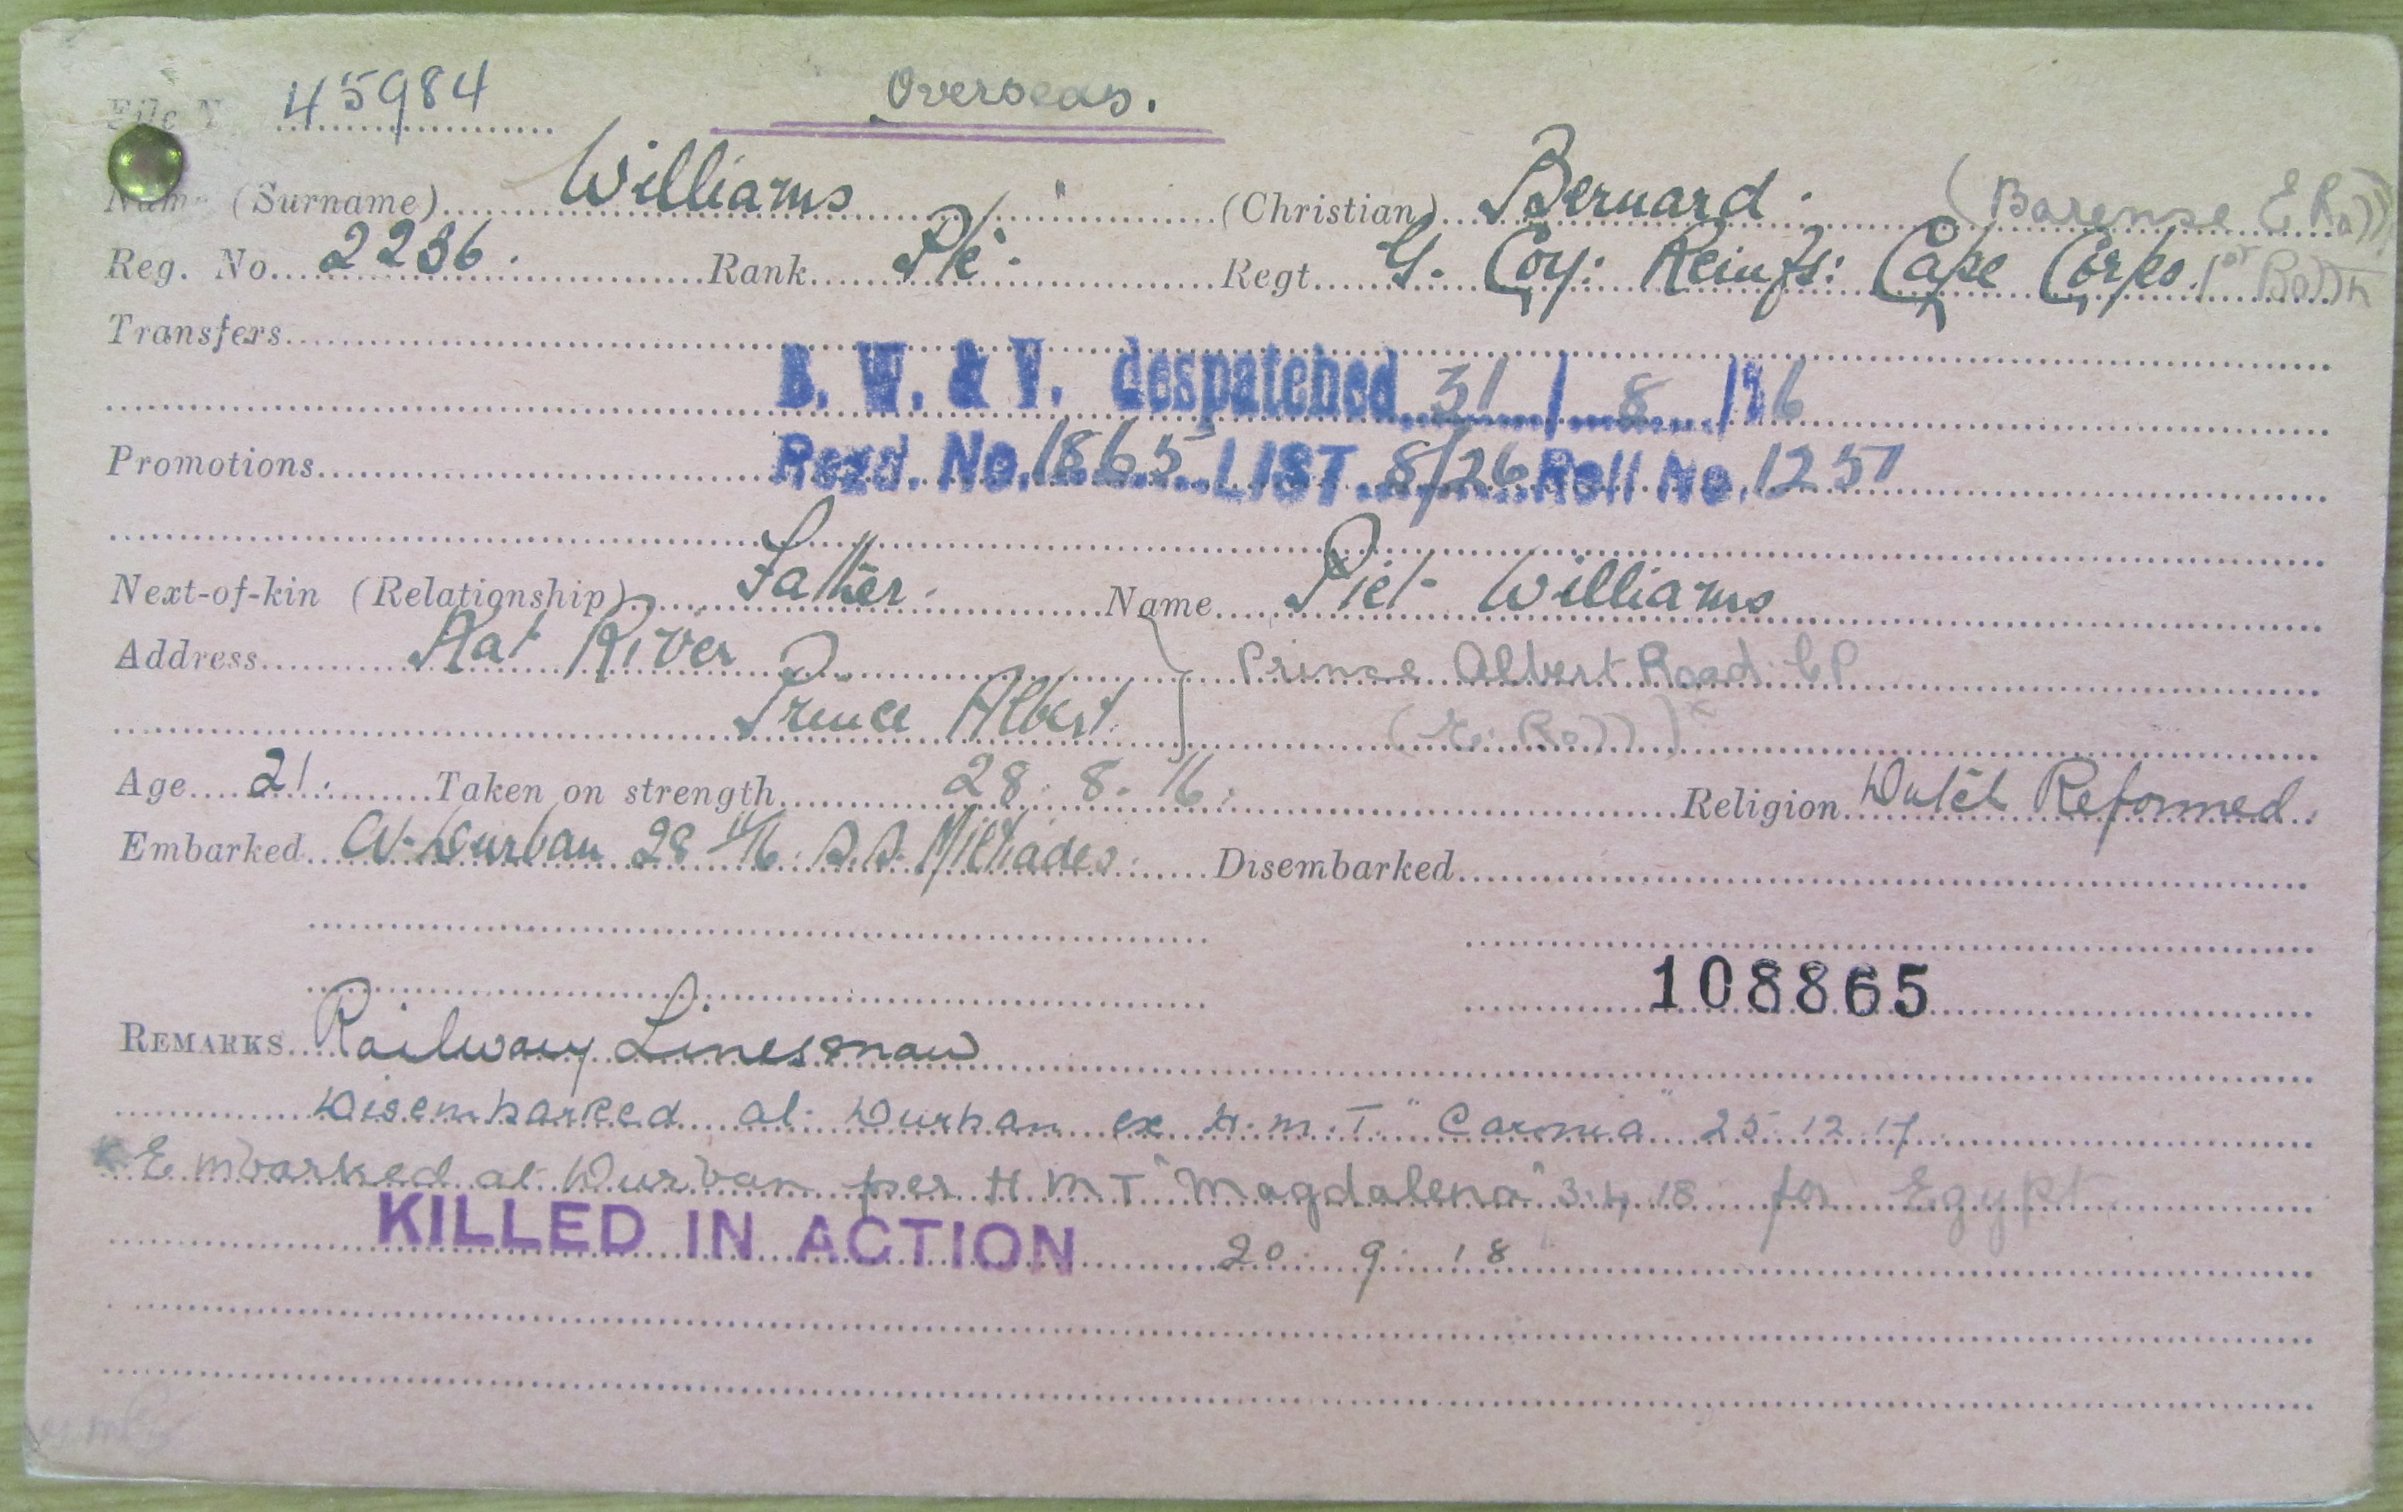 File N 45984 Overseas.
Name (Surname) Williams (Christian) Bernard. (Barense E Roll)
Reg. No. 2256. Rank Pte. Regt G. Coy: Reinfs: Cape Corps. 1st Battn
Transfers
B. W. & V. despatched 31/8/26
Promotions Regd. No. 1865 LIST 8/26 Roll No. 1251
Next-of-kin (Relationship) Father. Name Piet Williams
Address Kat River Prince Albert Road. CP
Prince Albert. (E. Roll)
Age 21. Taken on strength 28. 8. 16. Religion Dutch Reformed.
Embarked At Durban 28 11/16. S.S. Miltiades. Disembarked
108865
REMARKS Railway Linesman
Disembarked at Durban ex H.M.T. "Caronia" 25.12.17
Embarked at Durban per H M T "Magdalena" 3.4.18 for Egypt
KILLED IN ACTION 20. 9. 18